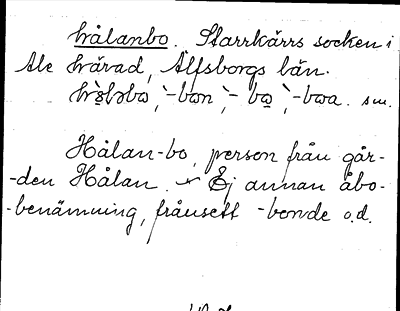 hålanbo. Starrkärrs socken i
Ale härad, Älfsborgs län.
-bon, -bo, -boa. sm.
Hålan-bo, person från går-
-den Hålan. Ej annan åbo-
-benämning, frånsett -bonde o.d.